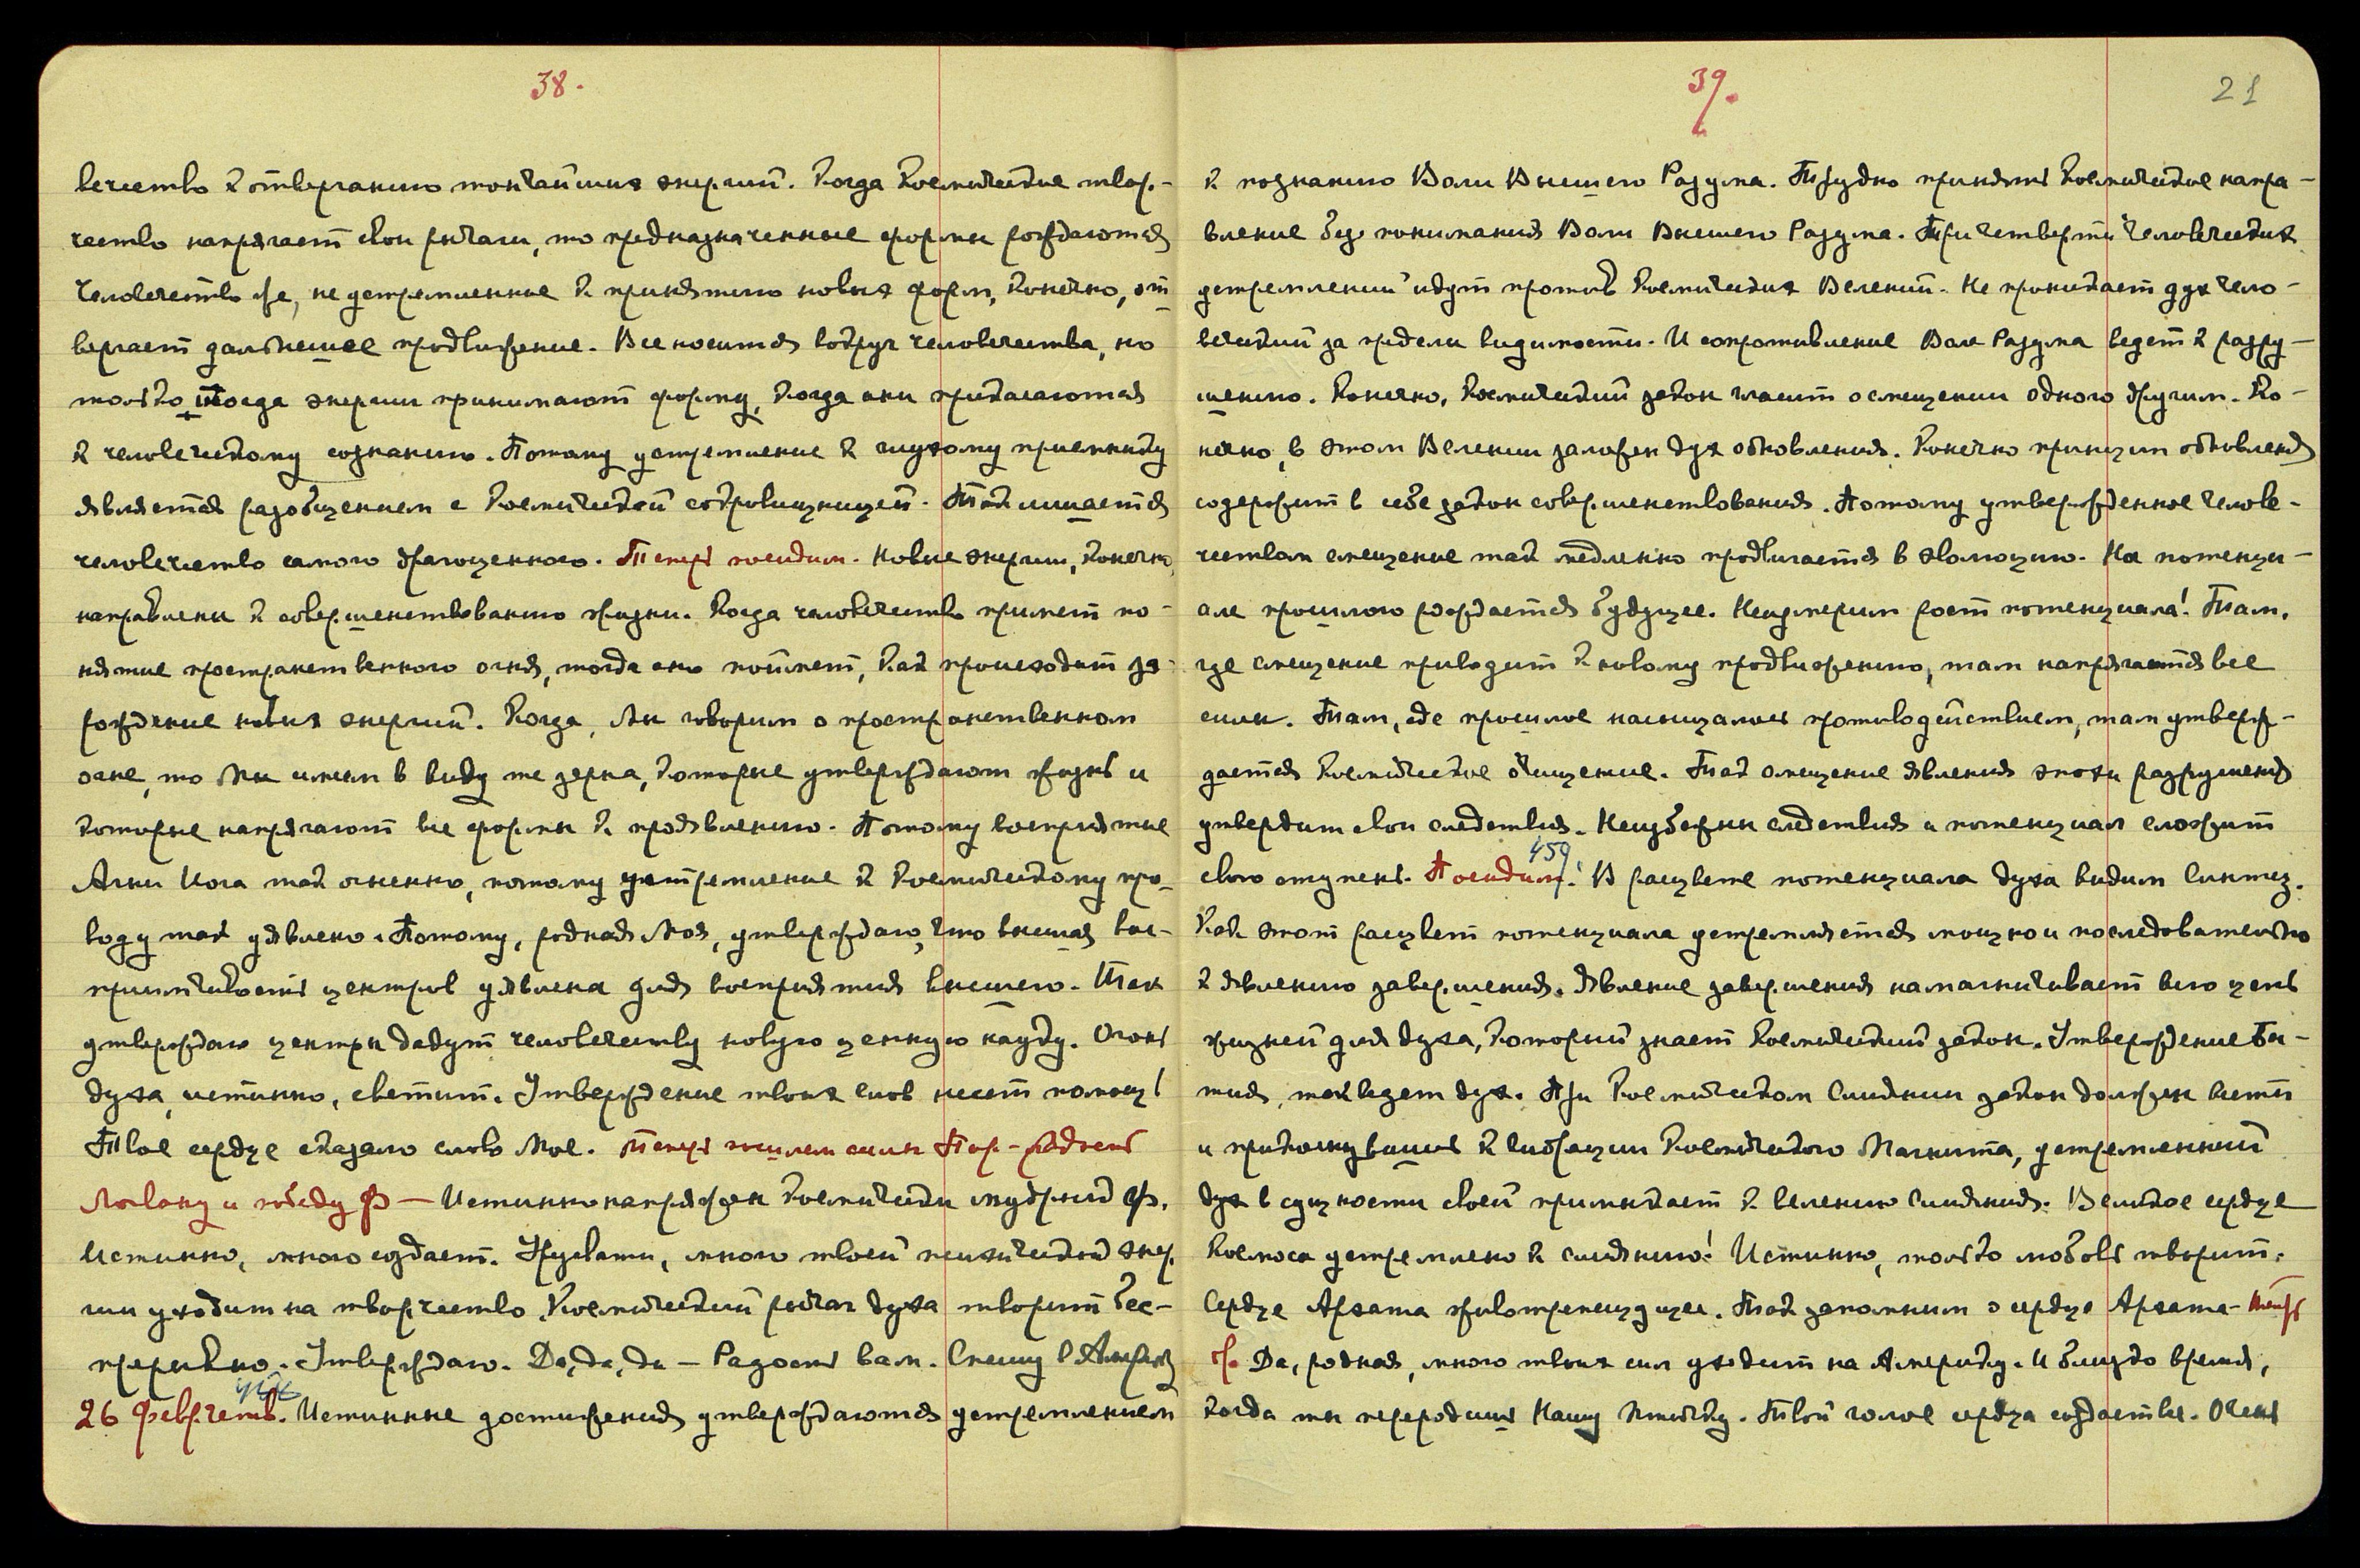 38.
вечество к отверганию тончайших энергий. Когда Космическое твор-
чество напрягает свои рычаги, то предназначенные формы рождаются
Человечество же, не устремленное к принятию новых форм, конечно, от
вергает дальнейшее продвижение. Все носится вокруг человечества, но
только тогда энергии принимают форму, когда они прикасаются
к человеческому сознанию. Потому устремление к глухому приемнику
является разобщением с Космической сокровищницей. Так лишается
человечество самого драгоценного. Теперь посидим. Новые энергии, конечно,
направлены к совершенствованию жизни. Когда человечество примет по-
нятие пространственного огня, тогда оно поймет, как происходит за-
рождение новых энергий. Когда, Мы говорим о пространственном
огне, то Мы имеем в виду те зерна, которые утверждают жизнь и
которые напрягают все формы к проявлению. Потому восприятие
Агни Йога так огненно, потому устремление к Космическому про-
воду так уявлено. Потому, родная Моя, утверждаю, что высшая вос-
приимчивость центров уявлена для восприятия высшего. Так
утверждаю центры дадут человечеству новую ценную науку. Огонь
духа, истинно, светит. Утверждение твоих слов несет помощь!
Твое сердце сказало слово Мое. Теперь пошлем силы Пор-
Логвану и победу Ф — Истинно напряжен Космически мудрый Ф.
Истинно, много создает. Урусвати, много твоей психической энер
гии уходит на творчество. Космический рычаг духа творит бес-
прерывно. Утверждаю. Да, да, да — Радость вам. Спешу в
26 Февр. четв. Истинные достижения утверждаются устремлением
39.
21
к познанию Воли Высшего Разума. Трудно принять Космическое напра-
вление без понимания Воли Высшего Разума. Три четверти человеческих
устремлений идут против Космических Велений. Не проникает дух чело-
веческий за пределы видимости. И сопротивление Воле Разума ведет к разру-
шению. Конечно, Космический закон гласит о смещении одного другим. Ко-
нечно, в этом Велении заложен дух обновления. Конечно принцип обновления
содержит в себе закон совершенствования. Потому утвержденное челове-
чеством смещение так медленно продвигается в эволюцию. На потенци-
але прошлого рождается будущее. Неизмерим рост потенциала! Там,
где смещение приводит к новому продвижению, там напрягаются все
силы. Там, где прошлое насыщалось противодействием, там утверж-
дается Космическое очищение. Так смещение явления эпохи разрушения
утвердит свои следствия. Неизбежны следствия и потенциал сложит
459
свою ступень. Посидим! В расцвете потенциала духа видим Синтез.
Как этот расцвет потенциала устремляется мощно и последовательно
к явлению завершения. Явление завершения намагничивает всю цепь
жизней для духа, который знает Космический закон. Утверждение Бы-
тия, так ведет дух. При Космическом Слиянии закон должен вести
и прикоснувшись к вибрации Космического Магнита, устремленный
дух в сущности своей примыкает к велению Слияния. Великое сердце
Космоса устремлено к слиянию! Истинно, только любовь творит.
Сердце Архата животрепещуще. Так запомним о сердце Архата - теперь
Да, родная, много твоих сил уходит на Америку. И близко время,
когда ты переродишь Нашу Птичку. Твой голос сердца создаст все. Очень